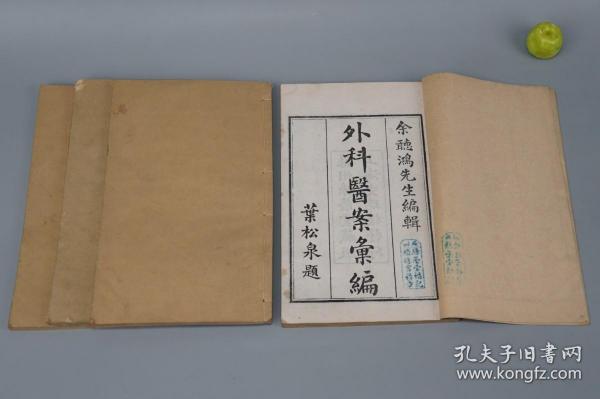 余聽鴻先生編輯
外科醫案彙編
葉松泉題
孔夫子旧书网
www.kongfz.com